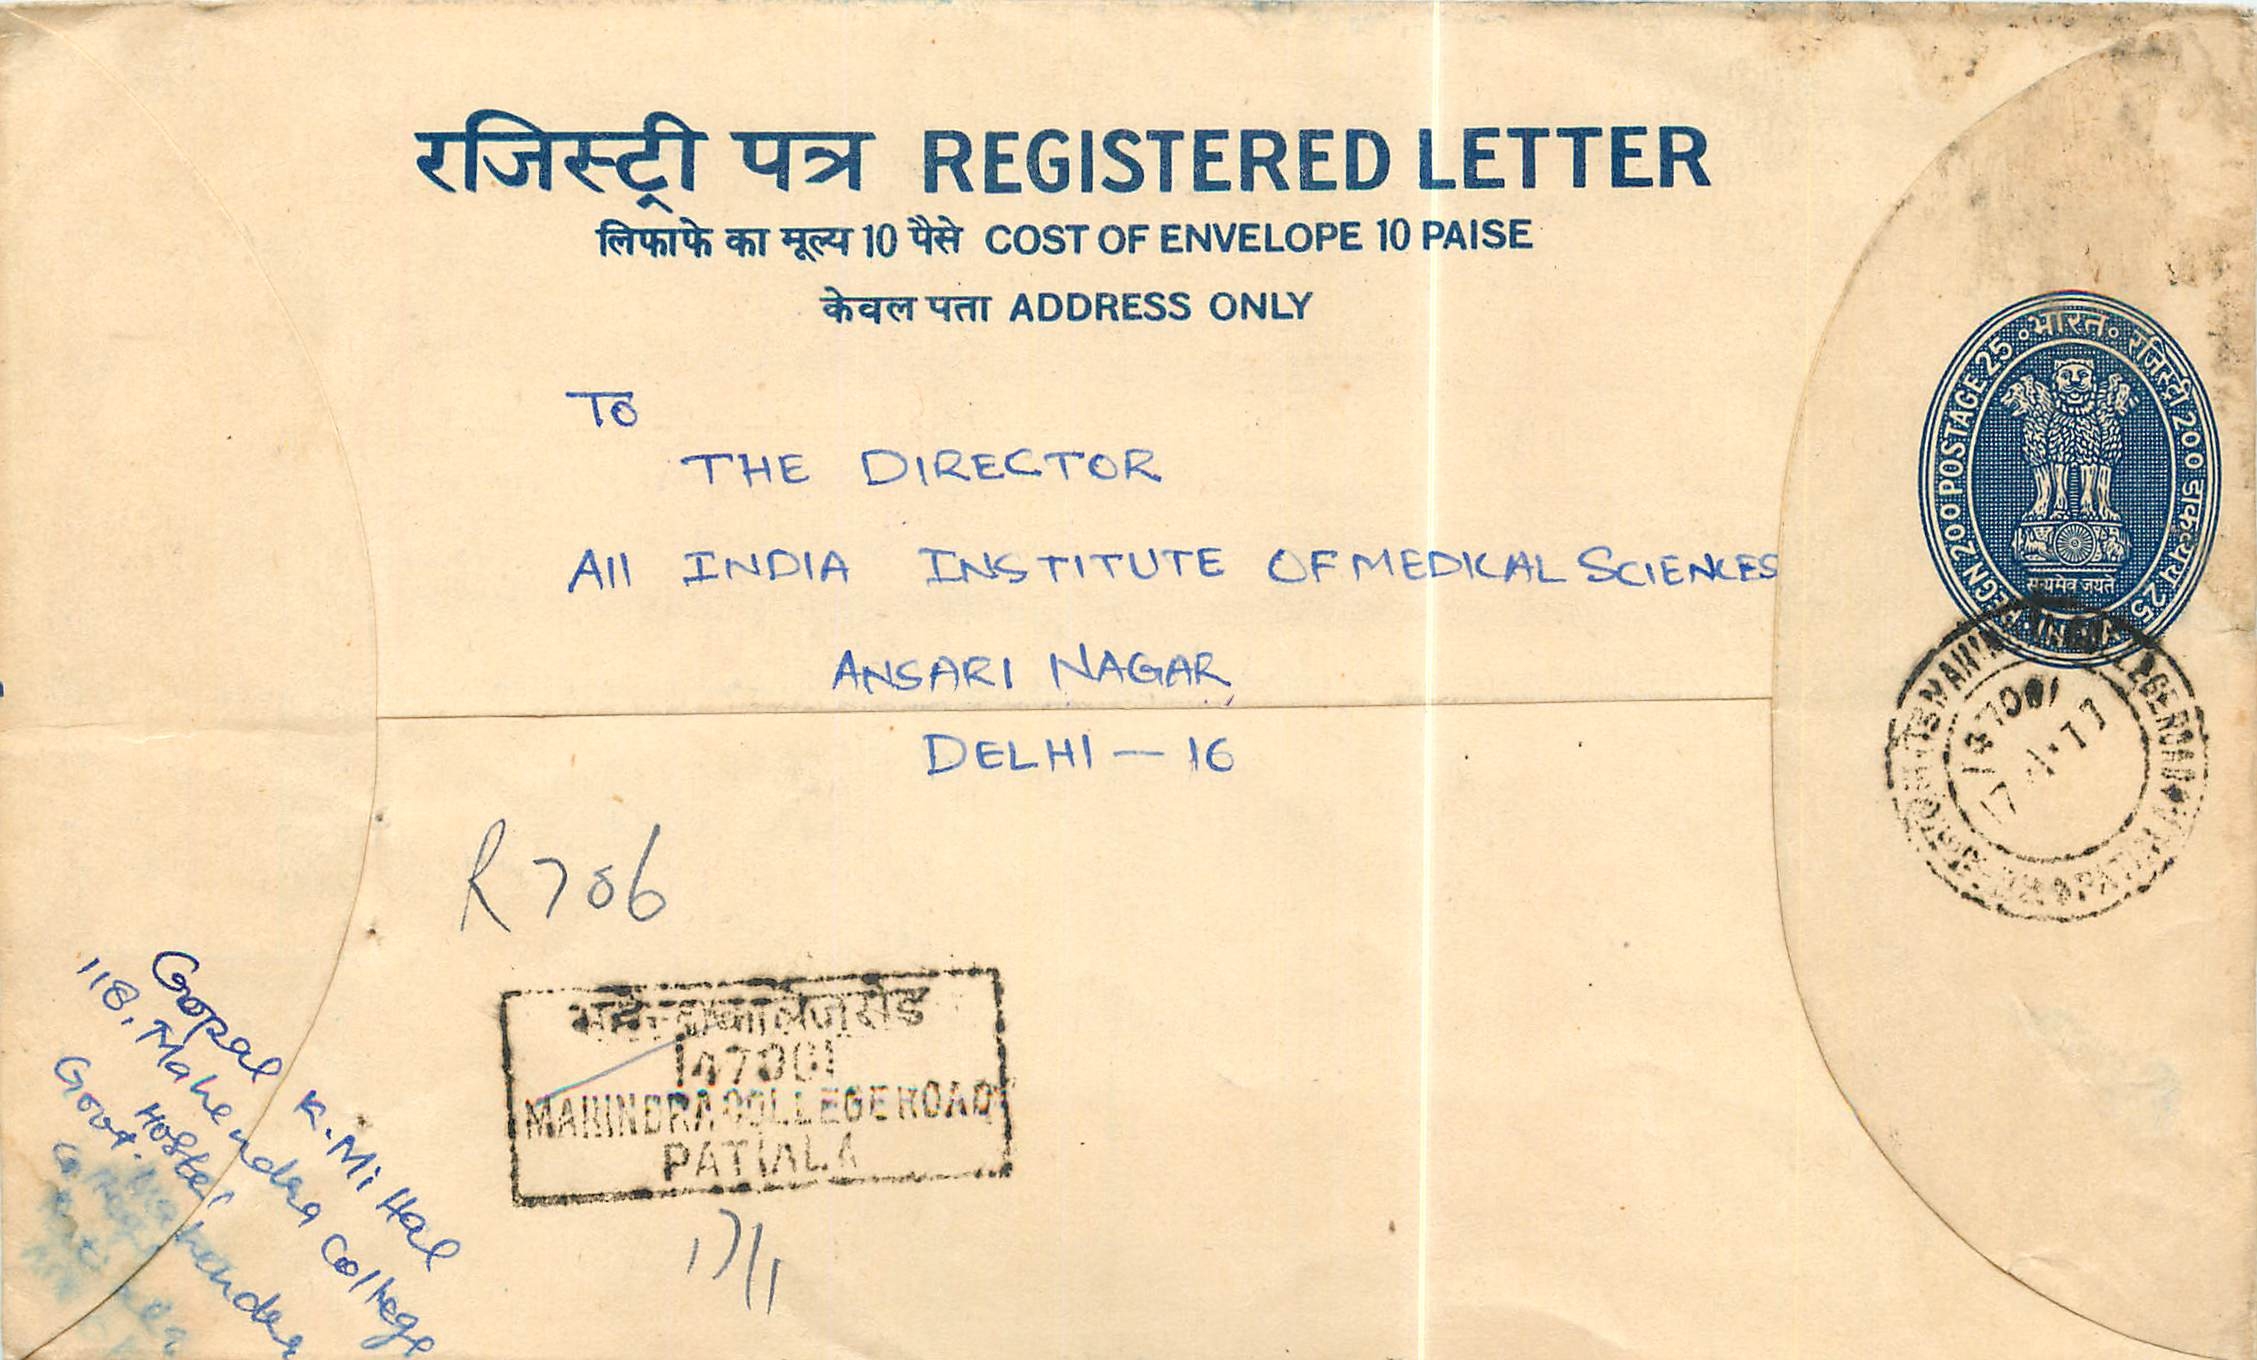 रजिस्ट्री पत्र REGISTERED LETTER
लिफाफे का मूल्य 10 पैसे COST OF ENVELOPE 10 PAISE
केवल पता ADDRESS ONLY
भारत रजिस्ट्री 200 डाकद्रव्य 25
REGN 200 POSTAGE 25
सत्यमेव जयते
INDIA
TO
THE DIRECTOR
All INDIA INSTITUTE OF MEDICAL SCIENCES
ANSARI NAGAR,
DELHI — 16
147001
17 1 77
R 706
147001
MAHINDRA COLLEGE ROAD
PATIALA
17/1
Gopal K. Mittal
118, Mahendra College
Hostel
Govt. Mahendra